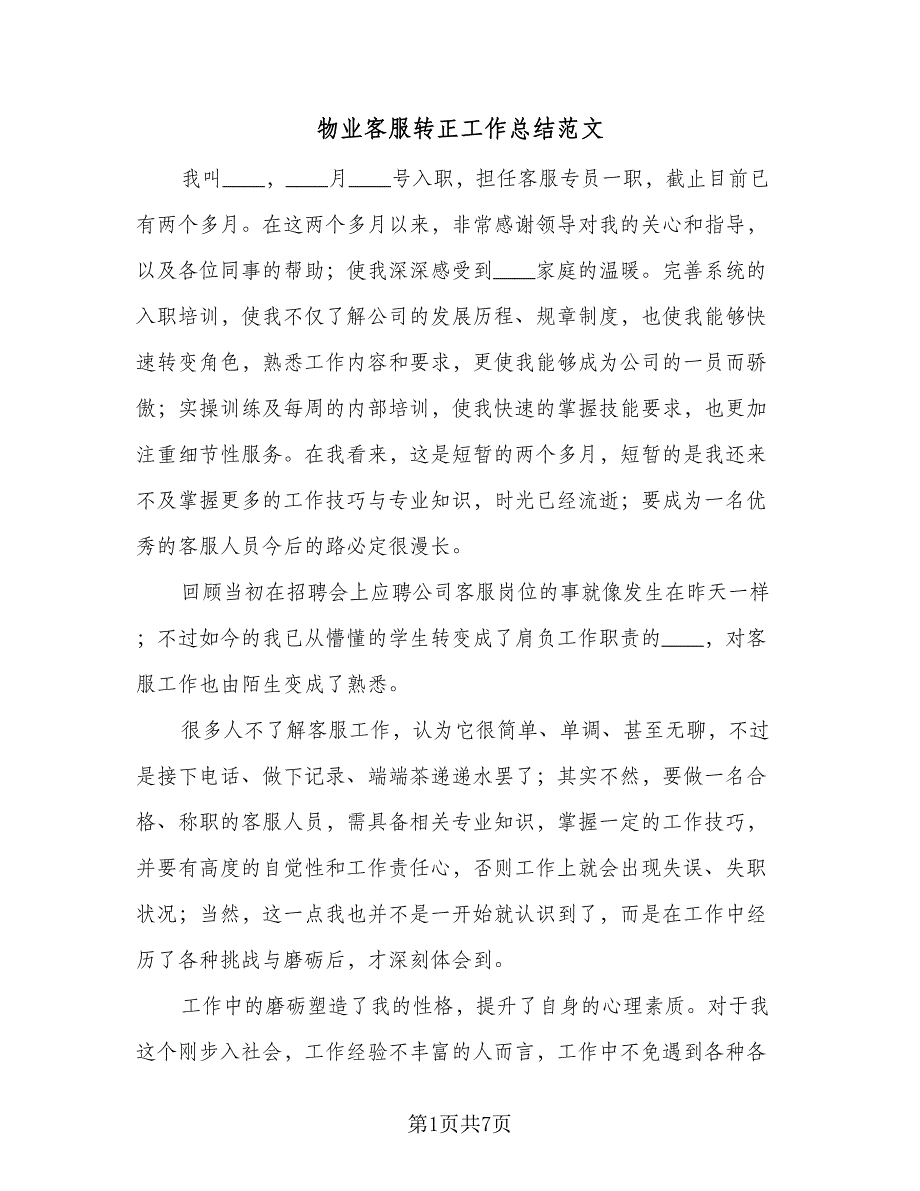 物业客服转正工作总结范文
我叫____，____月____号入职，担任客服专员一职，截止目前已
有两个多月。在这两个多月以来，非常感谢领导对我的关心和指导，
以及各位同事的帮助；使我深深感受到____家庭的温暖。完善系统的
入职培训，使我不仅了解公司的发展历程、规章制度，也使我能够快
速转变角色，熟悉工作内容和要求，更使我能够成为公司的一员而骄
傲；实操训练及每周的内部培训，使我快速的掌握技能要求，也更加
注重细节性服务。在我看来，这是短暂的两个多月，短暂的是我还来
不及掌握更多的工作技巧与专业知识，时光已经流逝；要成为一名优
秀的客服人员今后的路必定很漫长。
回顾当初在招聘会上应聘公司客服岗位的事就像发生在昨天一样
；不过如今的我已从懵懂的学生转变成了肩负工作职责的____，对客
服工作也由陌生变成了熟悉。
很多人不了解客服工作，认为它很简单、单调、甚至无聊，不过
是接下电话、做下记录、端端茶递递水罢了；其实不然，要做一名合
格、称职的客服人员，需具备相关专业知识，掌握一定的工作技巧，
并要有高度的自觉性和工作责任心，否则工作上就会出现失误、失职
状况；当然，这一点我也并不是一开始就认识到了，而是在工作中经
历了各种挑战与磨砺后，才深刻体会到。
工作中的磨砺塑造了我的性格，提升了自身的心理素质。对于我
这个刚步入社会，工作经验不丰富的人而言，工作中不免遇到各种各
第1页共7页